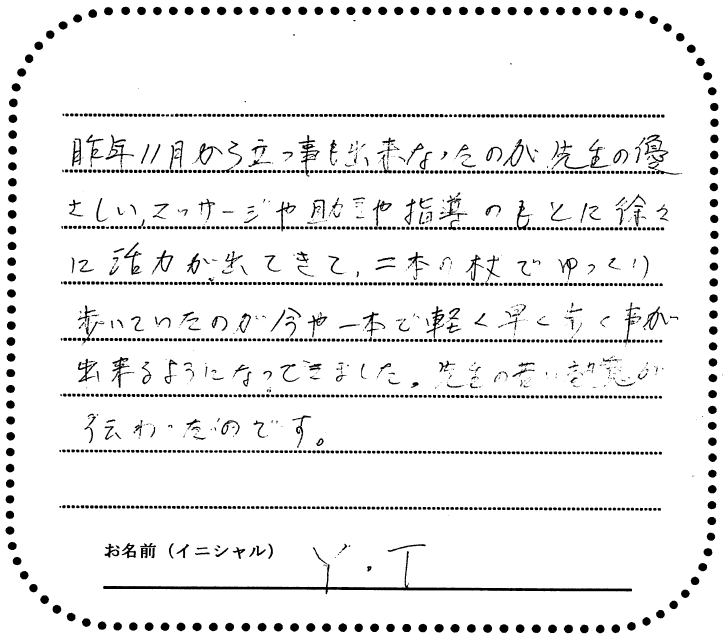 昨年11月から立つ事も出来なったのが先生の優
さしい、マッサージや助言や指導のもとに徐々
に活力が出てきて、二本の杖でゆっくり
歩いていたのが今や一本で軽く早く歩く事が
出来るようになってきました。先生の若い熱意が
伝わったのです。
お名前（イニシャル） Y.T